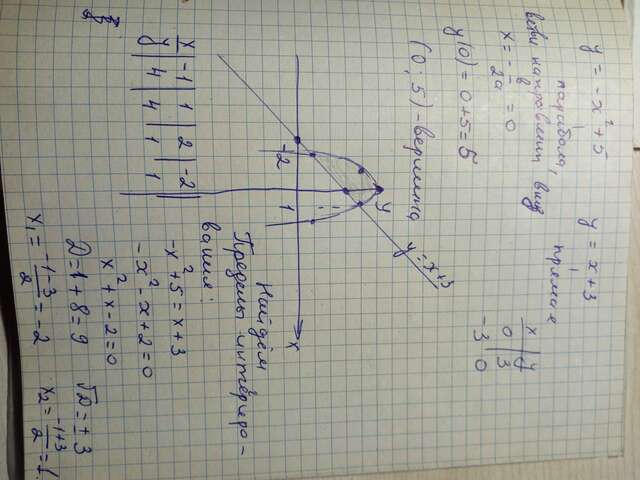 y = -x² + 5
парабола,
ветви направлены вниз
x = -b/2a = 0
y(0) = 0+5=5
(0; 5) - вершина
y = x+3
прямая
x | y
0 | 3
-3 | 0
y
y=x+3
-2
1
x
x | -1 | 1 | 2 | -2
y | 4 | 4 | 1 | 1
Найдём
Пределы интегрирo-
вания:
-x²+5 = x+3
-x²-x+2=0
x²+x-2=0
D=1+8=9 √D=±3
x₁ = -1-3/2 = -2 x₂ = -1+3/2 = 1.